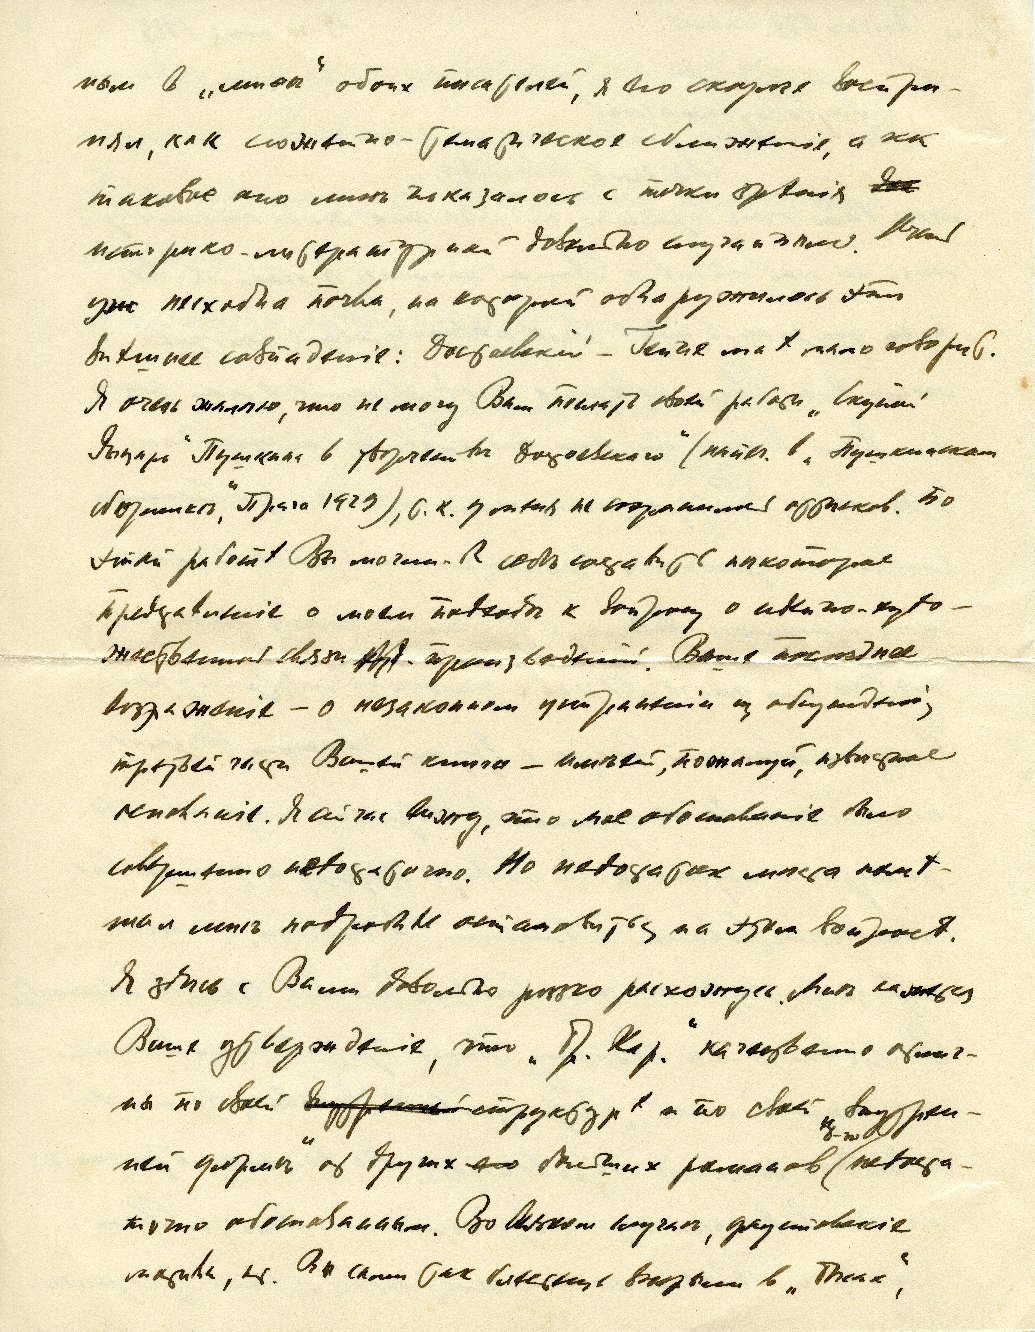 ным в „мифы“ обоих писателей, я его скорее воспри-
нял, как сюжетно-тематическое сближеніе, а как
таковое оно мнѣ показалось с точки зрѣнія
историко-литературной довольно случайным.
уж несходна почва, на которой обнаружилось это
внѣшнее совпаденіе: Достоевскій – Гейне мнѣ мало говорит.
Я очень жалѣю, что не могу Вам послать своей работы „Скупой
Рыцарь“ Пушкина в творчествѣ Достоевскаго“ (напеч. в „Пушкинском
сборникѣ“, Прага 1929), т.к. у меня не сохранилось оттисков. По
этой работѣ Вы могли-б себѣ составить нѣкоторое
представленіе о моем подходѣ к вопросу о идейно-худо-
жественной связи произведеній. Ваше послѣднее
возраженіе – о незаконном устраненіи из обсужденія
третьей части Вашей книги – имѣет, пожалуй, извѣстное
основаніе. Я сейчас вижу, что мое обоснованіе было
совершенно недостаточно. Но недостаток мѣста помѣ-
шал мнѣ подробнѣе остановиться на этом вопросѣ.
Я здѣсь с Вами довольно рѣзко расхожусь. Мнѣ кажется
Ваше утвержденіе, что „Бр. Кар.“ качественно отлич-
ны по своей структурѣ и по своей „внутрен-
ней формѣ“ от других романов (недоста-
точно обоснованным. Во всяком случаѣ, фаустовскіе
мотивы, кот. Вы сами так блестяще вскрыли в „Бѣсах“,